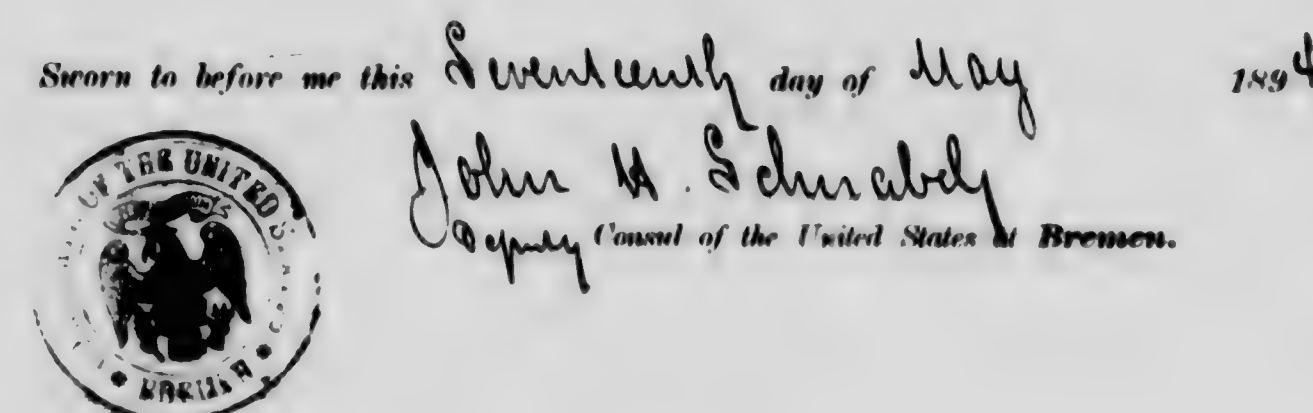 Sworn to before me this Seventeenth day of May 1894
John H. Schnabely
Deputy Consul of the United States at Bremen.
OF THE UNITED
BREMEN